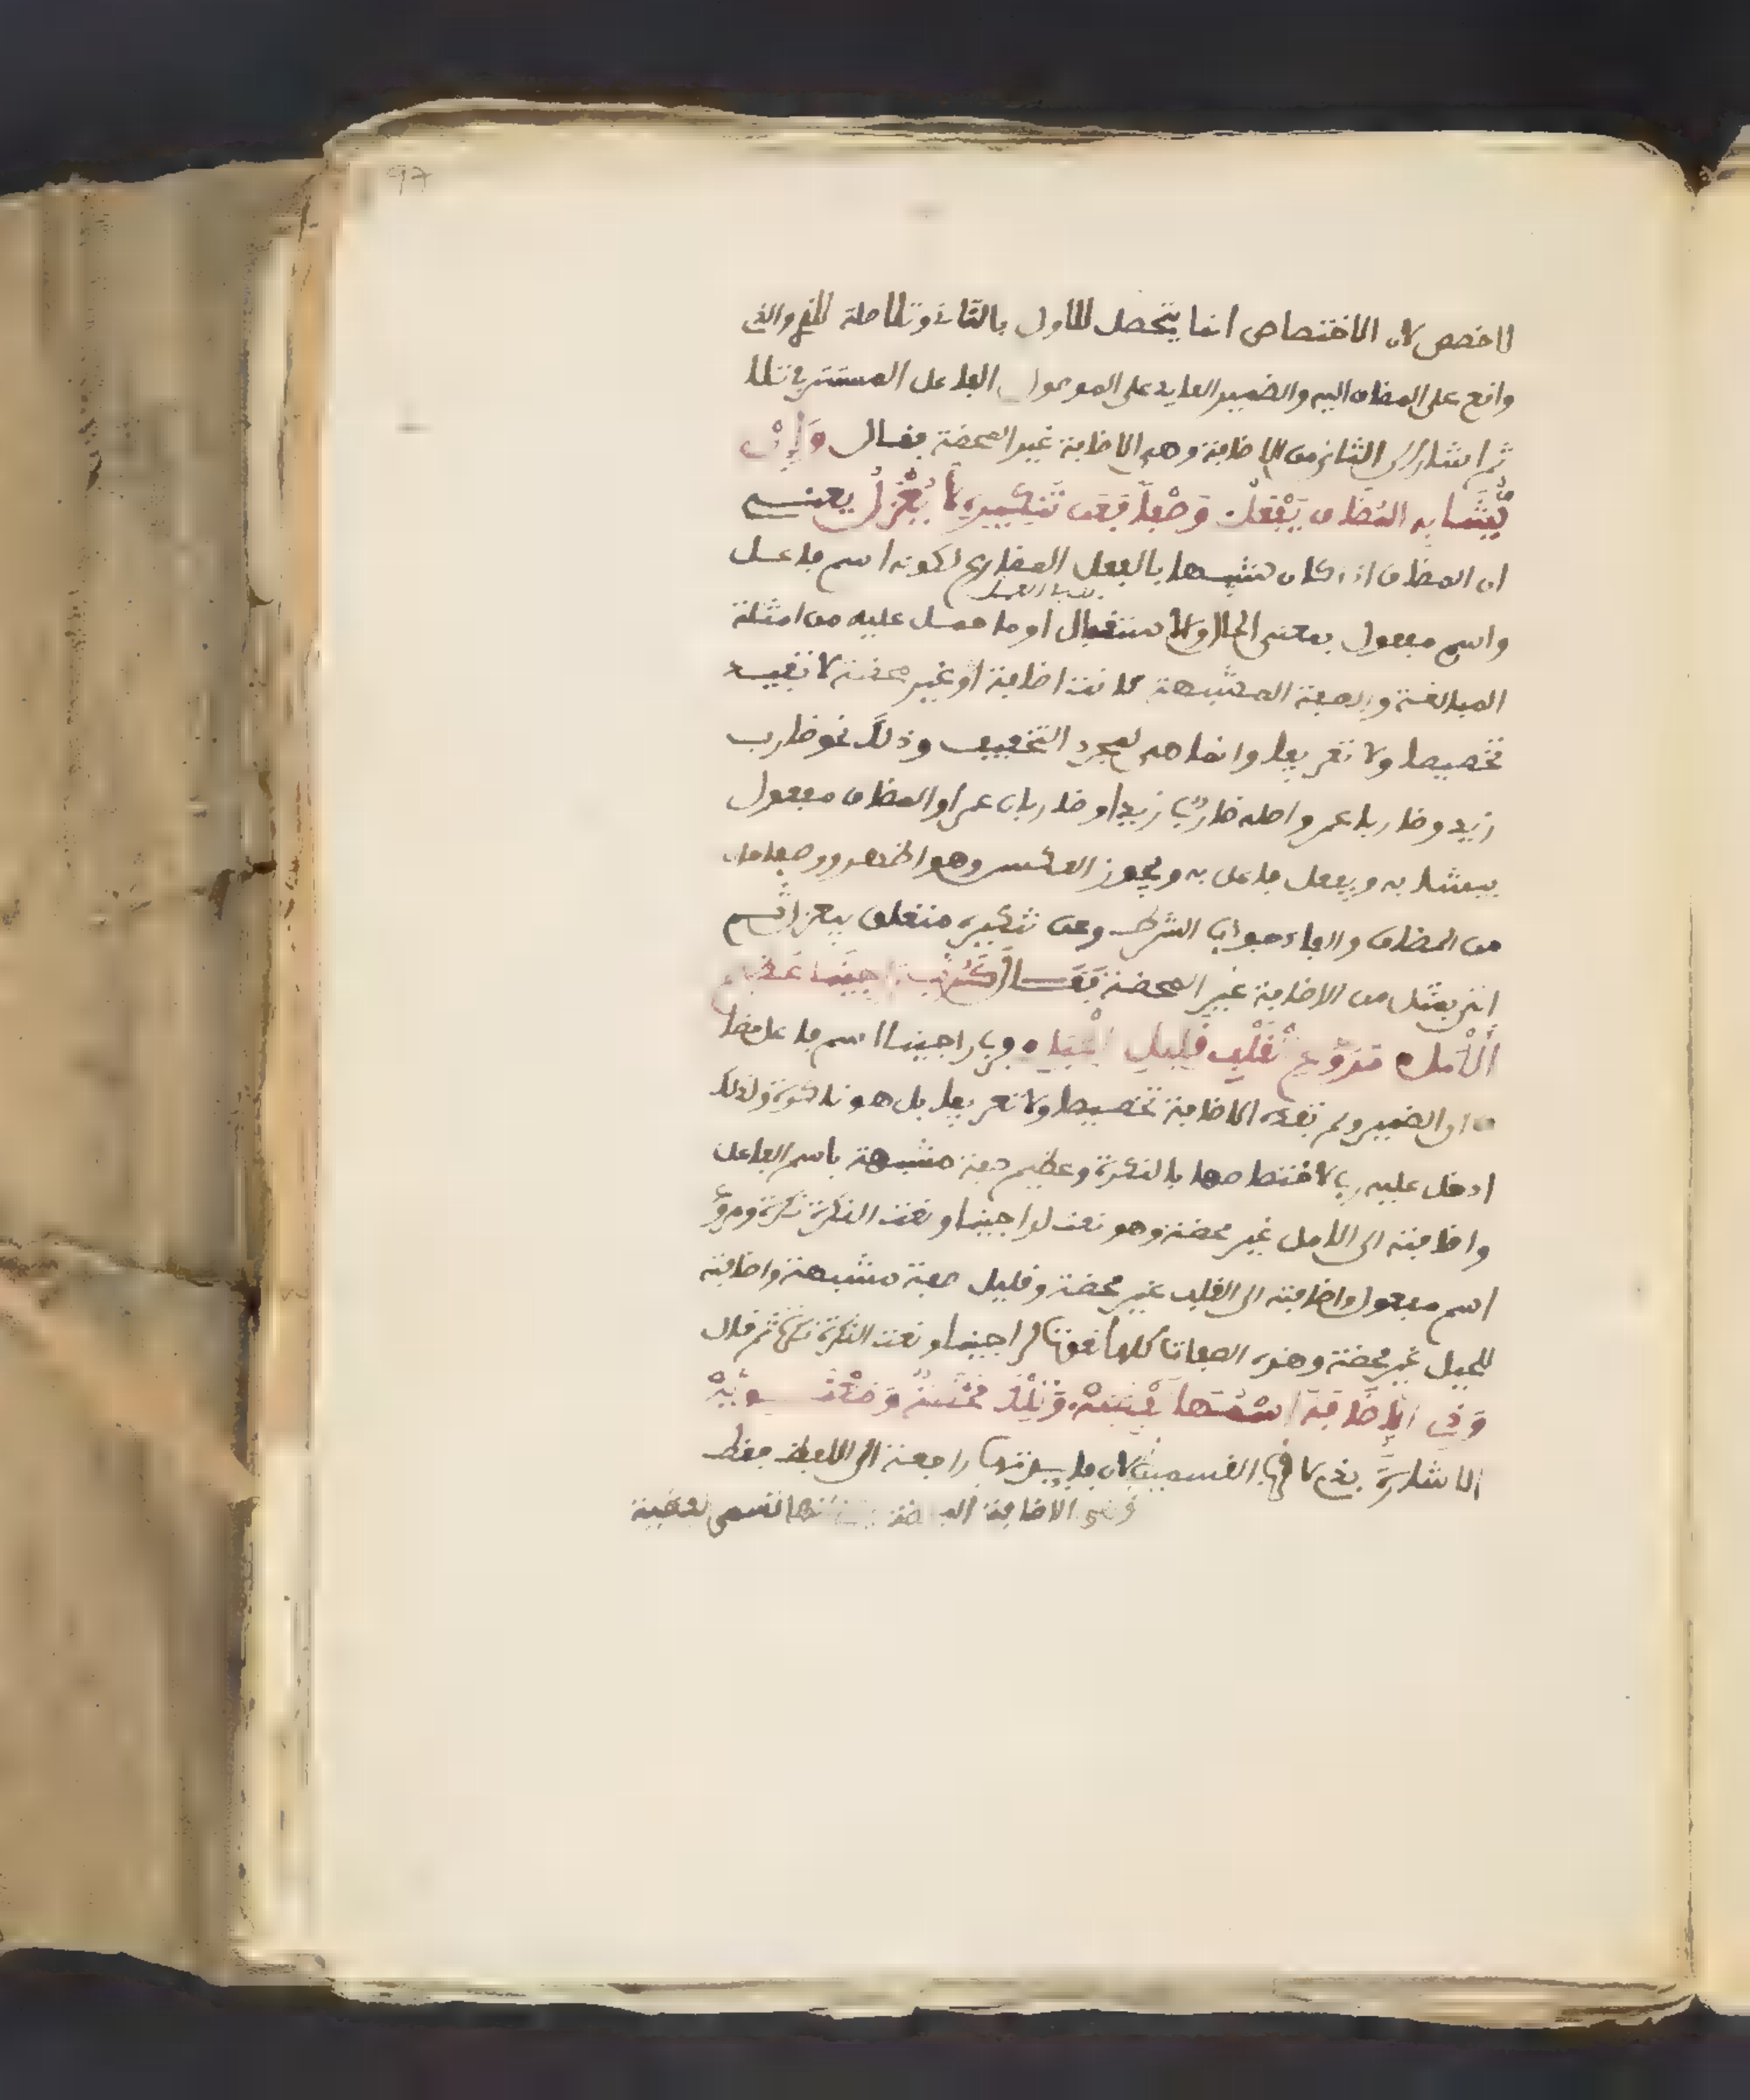 97
لاخصص لان الاختصاص انما يتحصل للاول بالثاني وتلا صلة للذي والذي
واقع على المضاف اليه والضمير العايد على الموصول الفاعل المستتر في تلا
ثم اشار الى الثاني من الاضافة وهي الاضافة غير المحضة فقال وَإِنْ
يُّشَابِهِ المُضَافُ يَفْعَلُ وَصْفاً فَعَن تَنكِيرِهِ لاَ يُعْزَلُ يعني
ان المضاف اذا كان شبيها بالفعل المضارع لكونه اسم فاعل
واسم مفعول بمعنى الحال ولا ستقبال او ما حمل عليه من امثلة
المبالغة والصفة المشبهة كانت اضافته غير محضة لا تفيد
تخصيصا ولا تعريفا وانما هي لمجرد التخفيف وذلك نحو ضارب
زيد وضاربا عمرو واصله ضارب زيدا وضاربان عمرا والمضاف مفعول
بيشابه ويفعل فاعل به ويجوز العكس وهو اظهر ووصفا حال
من المضاف والفاء جواب الشرط وعن تنكيره متعلق بيعزل ثم
اتى بمثل من الاضافة غير المحضة فقال كَرُبَّ راجِينَا عَظِيمِ
الْأَمَلِ مُرَوَّعِ الْقَلْبِ قَلِيلِ الْحِيَلِ فرب راجينا اسم فاعل مضا
ف الى الضمير ولم تفده الاضافة تخصيصا ولا تعريفا بل هو نكرة ولذلك
ادخل عليه رب لاختصاصها بالنكرة وعظيم صفة مشبهة باسم الفاعل
واضافته الى الامل غير محضة وهو نعت لراجينا ونعت النكرة نكرة ومروع
اسم مفعول واضافته الى القلب غير محضة وقليل صفة مشبهة واضافته
للحيل غير محضة وهذه الصفات كلها نعوت لراجينا ونعت النكرة نكرة ثم قال
وَذِي الإِضَافَةُ اسْمُهَا لَفْظِيَّهْ وَتِلْكَ مَحْضَةٌ وَمَعْنَـوِيَّهْ
الاشارة بذي لا في القسمين لان فايدتها راجعة الى اللفظ فقط
الاضافة تسمى لفظية